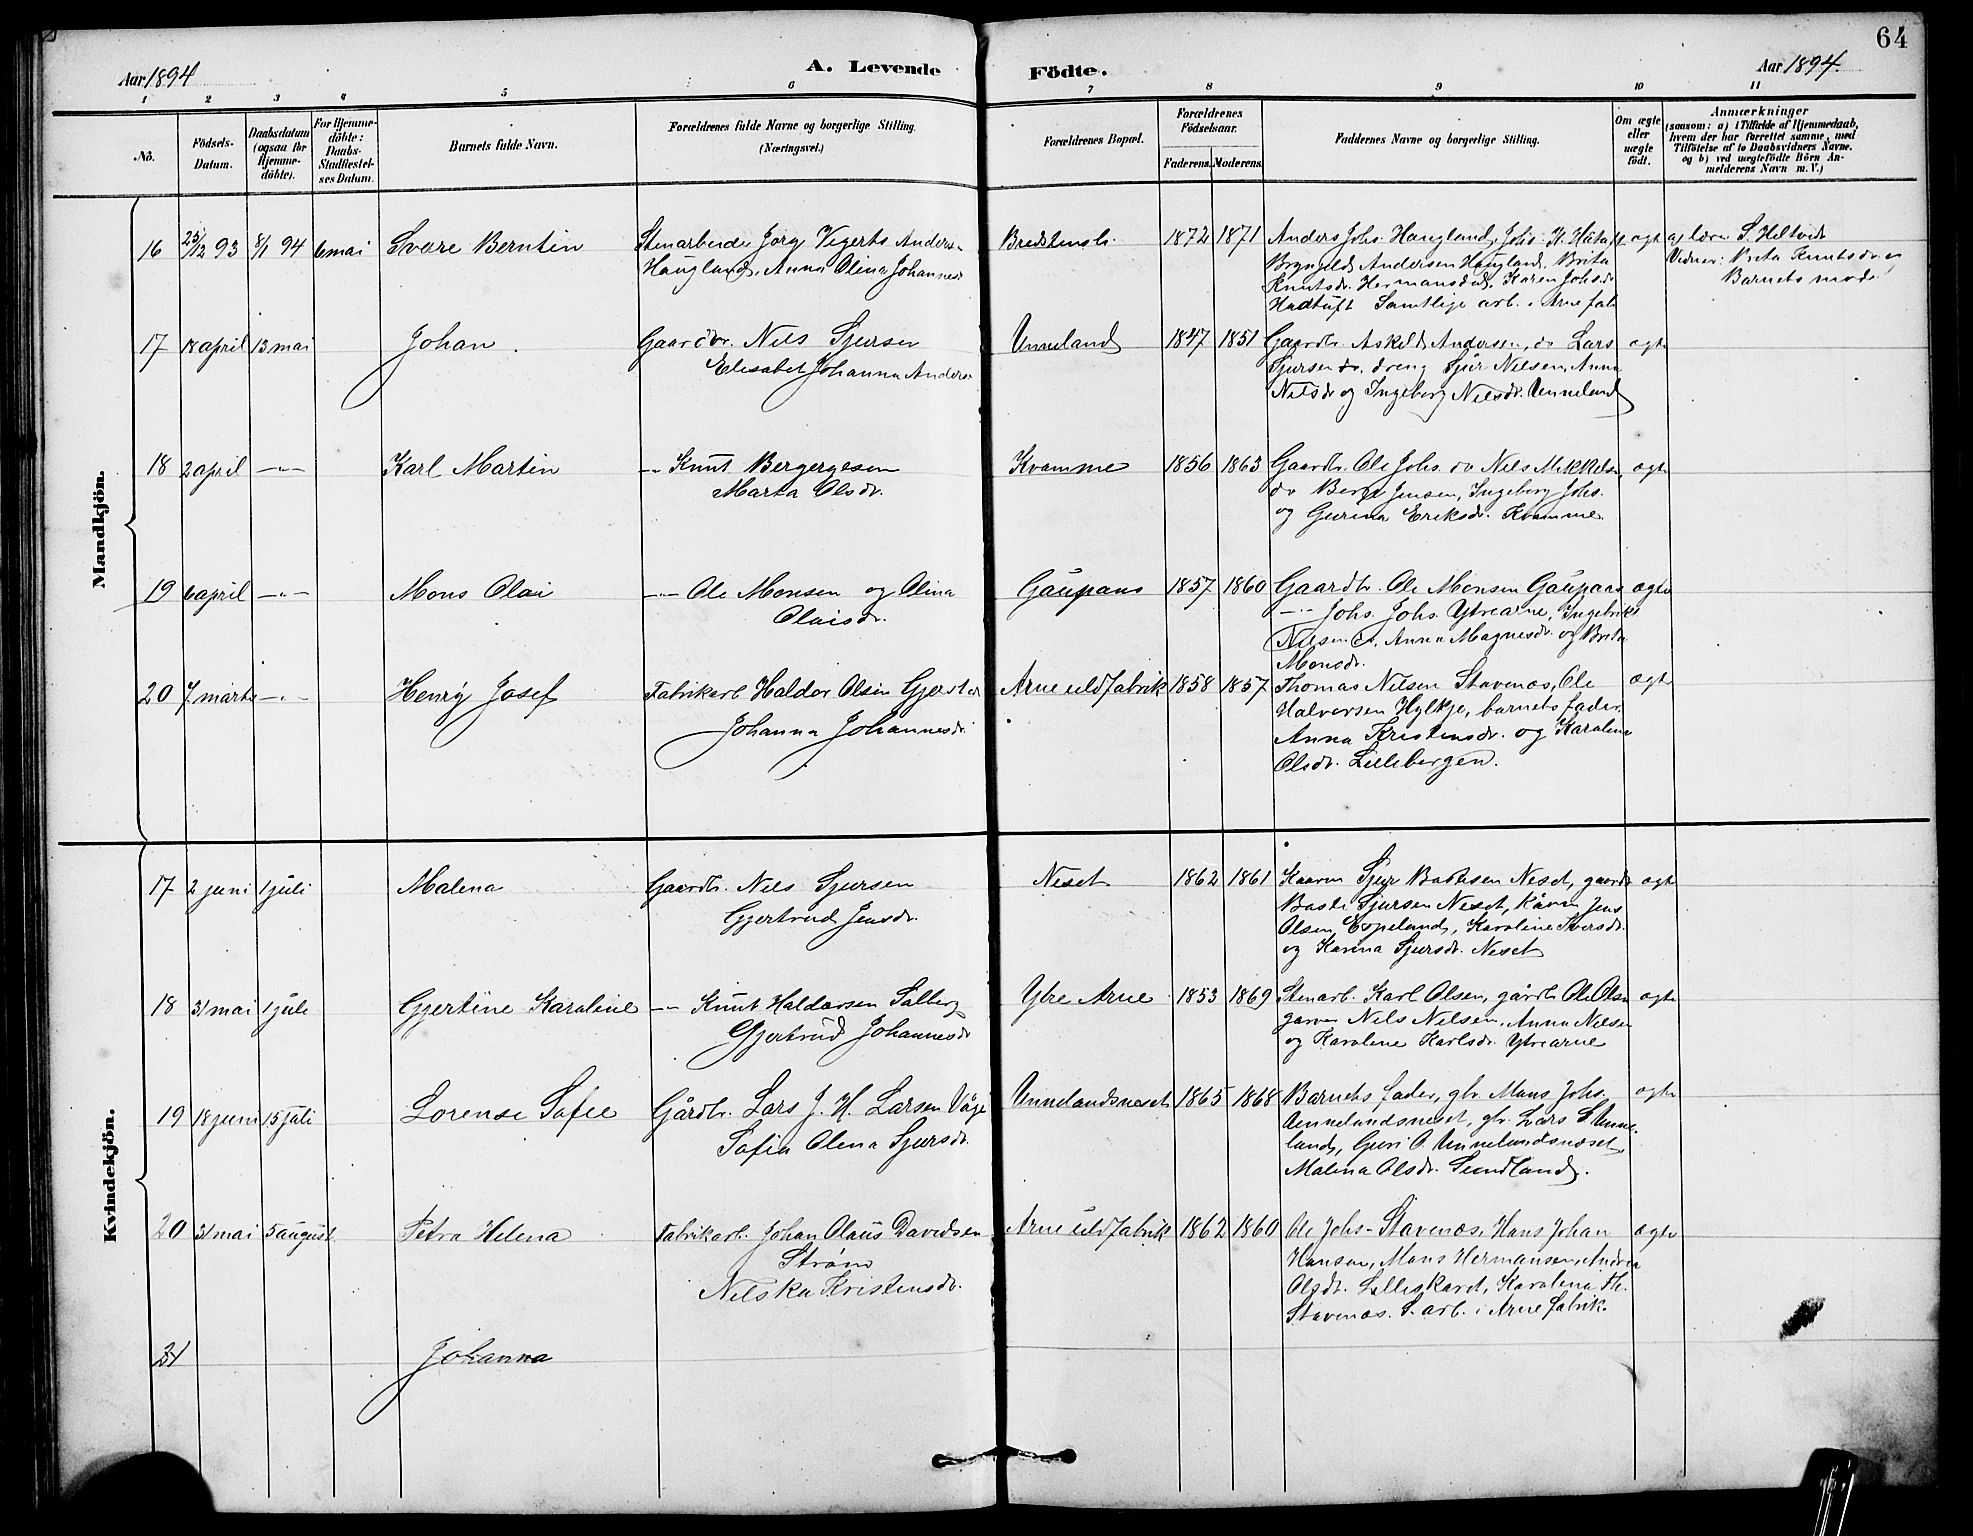 64
Aar 1894
A. Levende
Födte.
Aar 1894.
1 2 3 4 5 6 7 8 9 10 11
No.
Födsels-
Datum.
Daabsdatum
(ogsaa for
Hjemme-
döbte).
For Hjemme-
döbte:
Daabs-
Stadfæstel-
ses Datum.
Barnets fulde Navn.
Forældrenes fulde Navne og borgerlige Stilling.
(Næringsvei.)
Forældrenes Bopæl.
Forældrenes
Födselsaar.
Faderens. Moderens.
Faddernes Navne og borgerlige Stilling.
Om ægte
eller
uægte
födt.
Anmærkninger
(saasom: a) i Tilfælde af Hjemmedaab,
hvem der har forrettet samme, med
Tilföielse af to Daabsvidners Navne.
og b) ved uægtefödte Börn An-
melderens Navn m. V.)
Mandkjön.
16 25/12 93 8/1 94 6 mai Svære Berntin
Stenarbeide Jorg Vegerts Anders-
Haugland, Anna Olina Johannesd
Bredstensb. 1872 1871
Anders Johs. Haugland, Johs. K. Håtuft
Bryngeld Andersen Haugland. Brita
Knutsdr. Hermansdr, Karen Johs.dr
Hadtuft Samtlige arb. i Arne fab
ægt
a) lærer S. Heltvedt
Vidner: Brita Knutsdr. og
Barnets mode
17 18 april 13 mai Johan.
Gaardbr. Nils Sjursen
Elisabet Johanna Anders
Unneland 1847 1851
Gaardbr Askild Andersen, do Lars
Sjursen do. dreng Sjur Nilsen, Anna
Nilsdr og Ingeborg Nilsdr. Unneland
ægte
18 2 april -"- Karl Martin
-"- Knut Bergergesen
Marta Olsdr.
Kvamme 1856 1863
Gaardbr. Ole Johs. do Nils Mikkelsen,
do Berge Jensen, Ingeborg Johs.
og Gurina Eriksdr. Kvamme.
ægte
19 6 april -"- Mons Olai
-"- Ole Monsen og Olina
Olaisdr.
Gaupaas 1857 1860
Gaardbr. Ole Monsen Gaupaas
-"- Johs. Johs. Ytrearne, Ingebrikt
Nilsen do, Anna Magnesdr. og Brita
Monsdr.
ægte
20 7 marts -"- Henry Josef
Fabrikarb Haldor Olsen Gjerstad
Johanna Johannesdr
Arne uldfabrik 1858 1857
Thomas Nilsen Stavenæs, Ole
Halvorsen Hylkje, barnets fader.
Anna Kristensdr. og Karolina
Olsdr. Lillebergen.
ægte
Kvindekjön.
17 2 juni 1 juli Malena
Gaardbr. Nils Sjursen
Gjertrud Jensdr.
Neset 1862 1861
Kaaren Sjur Baardsen Neset, gaardbr
Baste Sjursen Neset, Kåren Jens
Olsen Espeland, Karoline Iversdr.
og Karina Sjursdr. Neset
ægte
18 31 mai 1 jule Gjertine Karoline
-"- Knut Haldorsen Salberg
Gjertrud Johannesdr
Ytre Arne 1853 1869
Stenarb. Karl Olsen, gårdb Ole Olsen
garver Nils Nilsen, Anna Nilsen
og Karolene Karlsdr. Ytrearne
ægte
19 18 juni 15 Juli Lorense Sofie
Gårdbr. Lars J. H. Larsen Våge
Sofia Olena Sjursdr.
Unnelandsneset 1865 1868
Barnets fader, gbr. Mans Johs.
Unnelandsneset, gbr. Lars S. Unne-
land, Guri O. Unnelandsneset,
Malina Olsdr. Sundland.
ægte
20 31 mai 5 august Petra Helena
Fabrikarb. Johan Olaus Davidsen
Strøm
Nilska Kristensdr.
Arne uldfabrik 1862 1860
Ole Johs- Stavenæs, Hans Johan
Hansen, Mons Hermansen, Andrea
Olsdr. Lilleskaret, Karolina Th.
Stavenæs. S. arb. i Arne fabrik.
ægte
21 Johanna